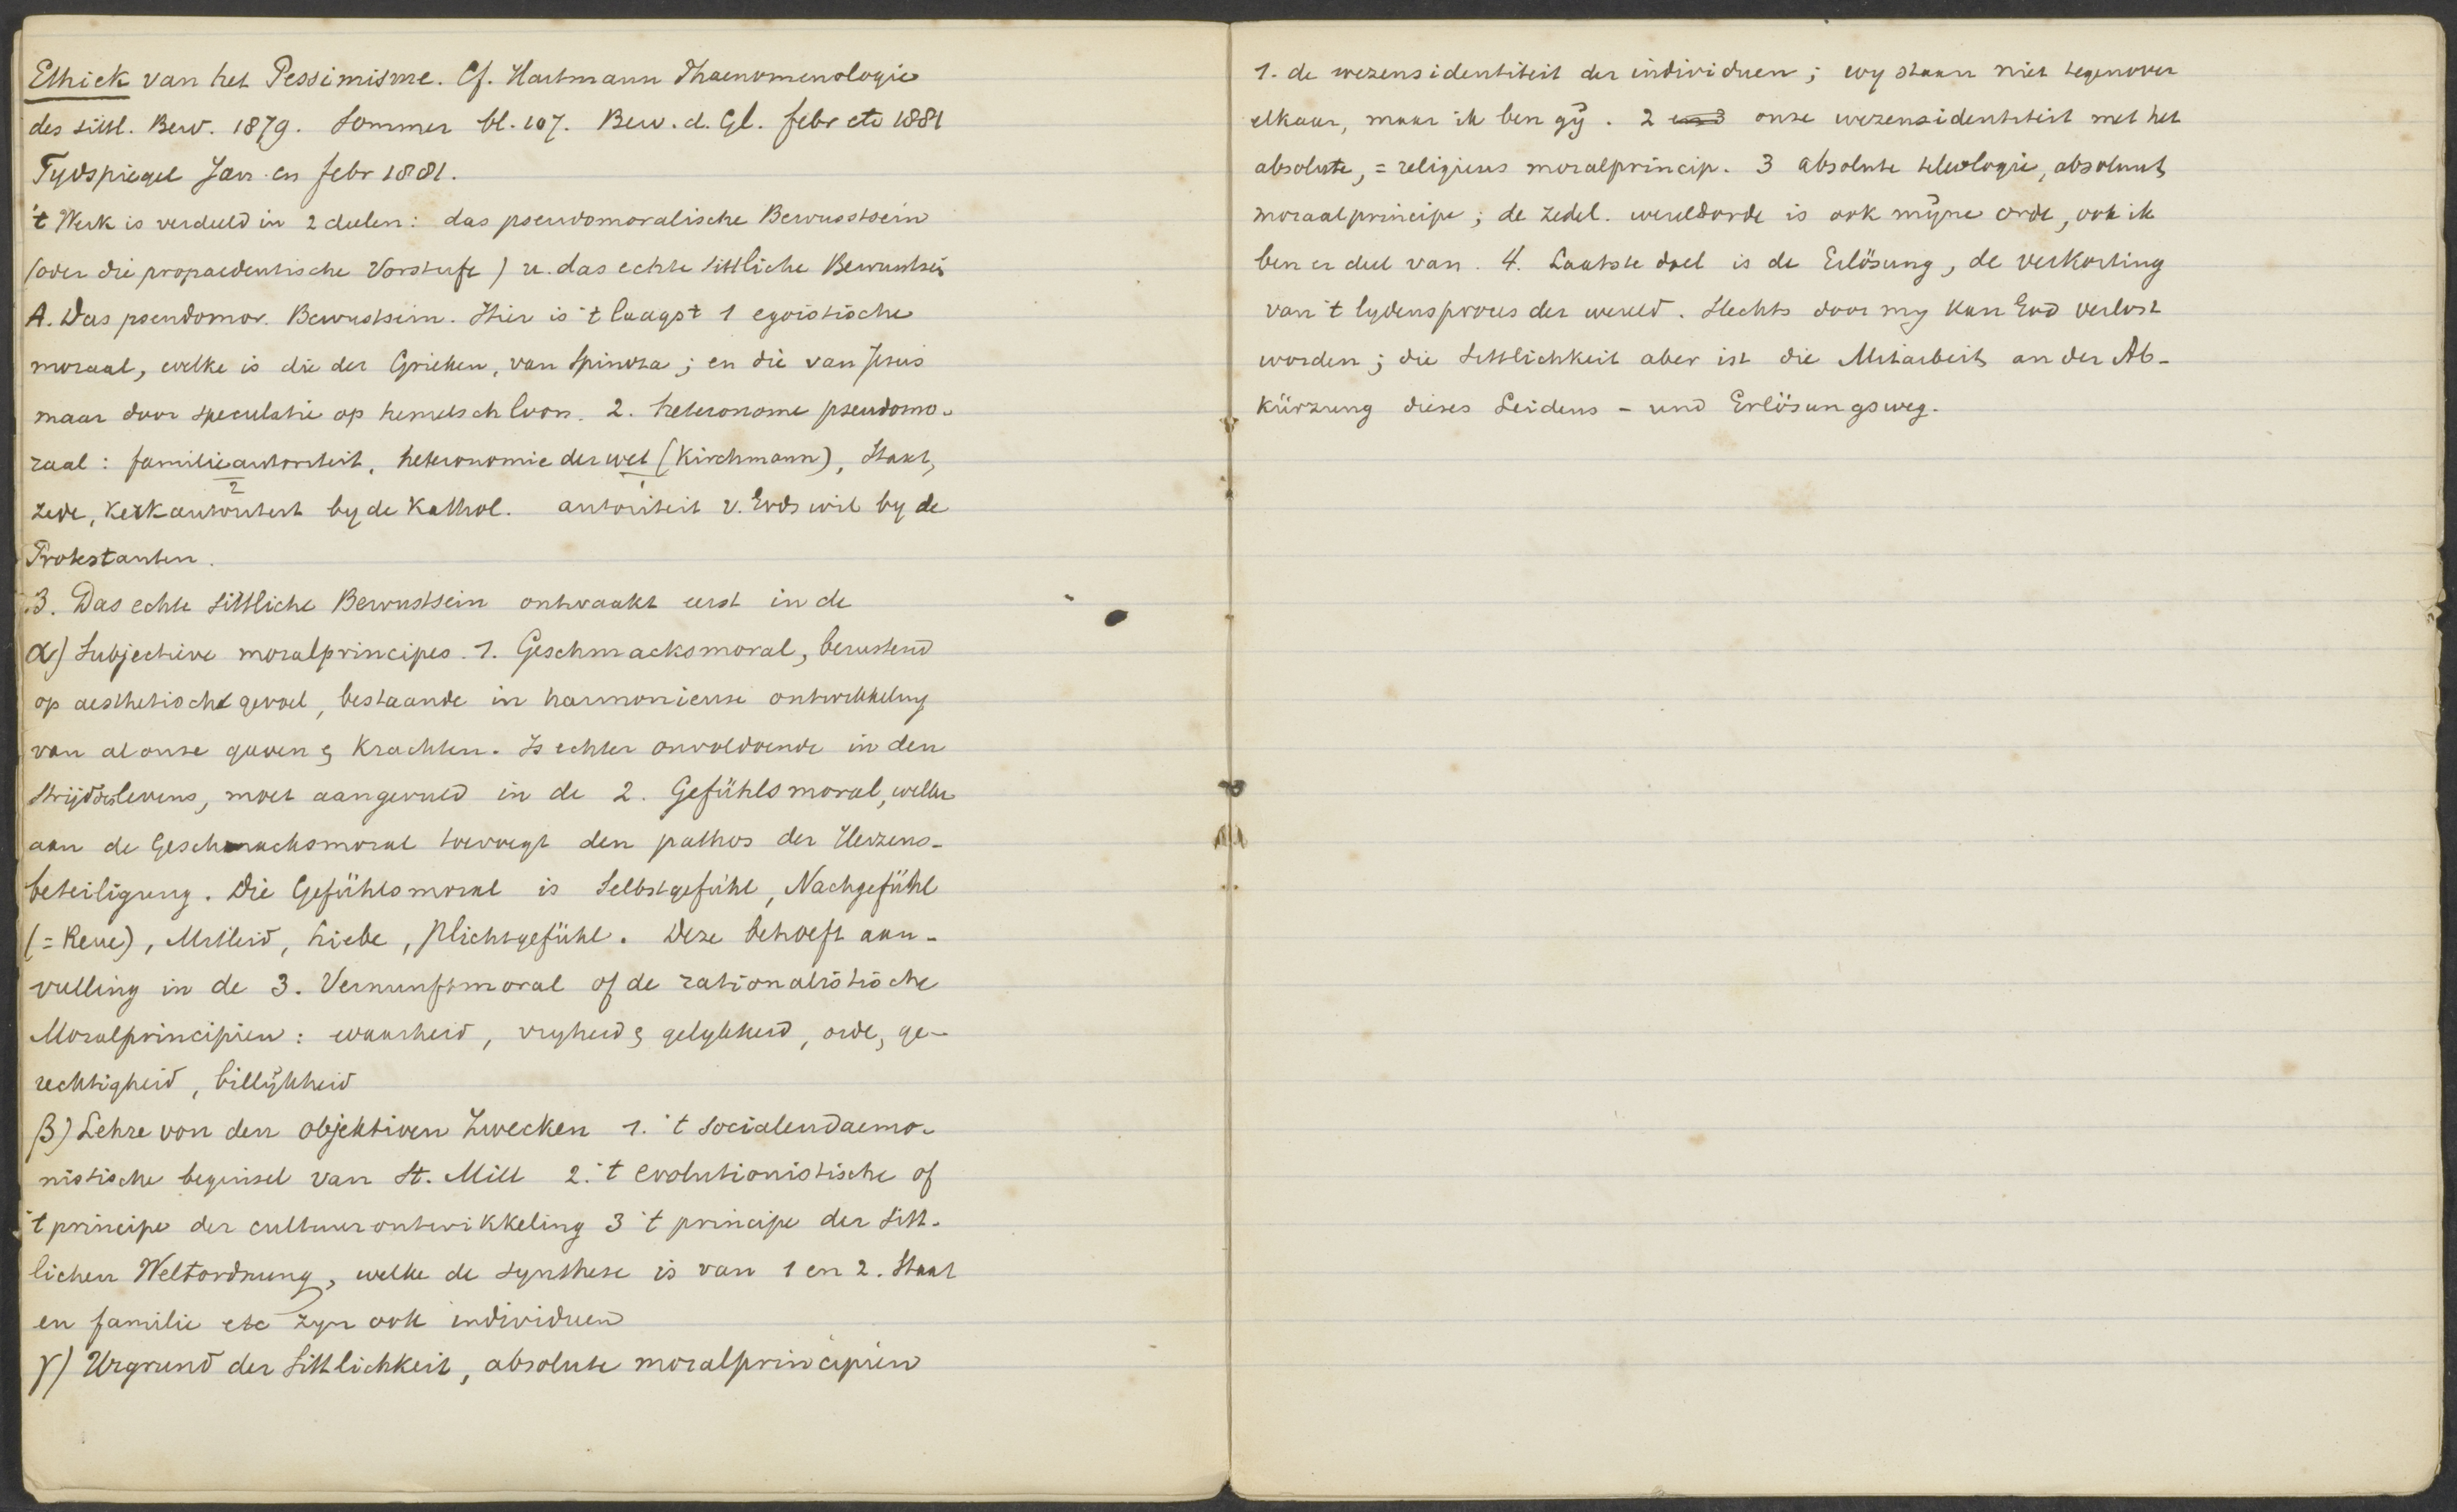 Ethiek van het Pessimisme. Cf. Hartmann Phaenomenologie
des sittl. Bew. 1879. Sommer bl. 107. Bew. d. Gl. febr etc 1881
Tydspiegel Jan en febr 1881.
't Werk is verdeeld in 2 deelen: das pseudomoralische Bewusstsein
(oder die propaedeutische Vorstufe) u. das echte sittliche Bewustsein
A. Das pseudomor. Bewustsein. Hier is 't laagst 1 egoistische
moraal, welke is die der Grieken, van Spinoza; en die van Jesus
maar door speculatie op hemelsch loon. 2. heteronome pseudomo-
raal: familieautoriteit, heteronomie der wet (Kirchmann), Staat,
2 1
zede, kerkautoriteit by de Kathol. autoriteit v. Gods wil by de
Protestanten.
B. Das echte sittliche Bewustsein ontwaakt eerst in de
α) Subjectieve moralprincipes. 1. Geschmacksmoral, berustend
op aesthetisch gevoel, bestaande in harmonieuse ontwikkeling
van al onze gaven & krachten. Is echter onvoldoende in den
strijd des levens, moet aangevuld in de 2. Gefühlsmoral, welke
aan de Geschmacksmoral toevoegt den pathos der Herzens-
beteiligung. Die Gefühlsmoral is Selbstgefühl, Nachgefühl
(= Reue), Mitleid, Liebe, Plichtgefühl. Deze behoeft aan-
vulling in de 3. Vernunftmoral of de rationalistische
Moralprincipien: waarheid, vryheid & gelykheid, orde, ge-
rechtigheid, billijkheid
β) Lehre von den objektiven Zwecken 1. 't socialeudaemo-
nistische beginsel van St. Mill 2. 't evolutionistische of
't principe der cultuurontwikkeling 3 't principe der Sitt-
lichen Weltordnung, welke de synthese is van 1 en 2. Staat
en familie etc zyn ook individuen
γ) Urgrund der Sittlichkeit, absolute moralprincipien
1. de wezensidentiteit der individuen; wy staan niet tegenover
elkaar, maar ik ben gij. 2 onze wezensidentiteit met het
absolute, = religieus moralprincip. 3 absolute teleologie, absoluut
moraalprincipe; de zedel. wereldorde is ook mijne orde, ook ik
ben er deel van. 4. Laatste doel is de Erlösung, de verkorting
van 't lydensproces der wereld. Slechts door my kan God verlost
worden; die Sittlichkeit aber ist die Mitarbeit an der Ab-
kürzung dieses Leidens- und Erlösungsweg.